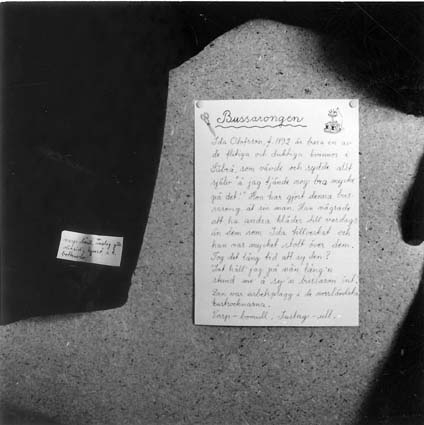 Bussarongen
Ida Olofsson, f. 1892 är bara en av
de flitiga och duktiga kvinnor i
som vävde och sydde allt
själv "å jag tjände nog bra mycke
på det!" Hon har gjort denna bus
sarong åt sin man. Han vägrade
att ha andra kläder till vardags
än dem som Ida tillverkat och
han var mycket stolt över dem.
Tog det lång tid att sy den?
Int håll jag på nån lång'n
stund me å sy'n bussaron int.
Den var arbetsplagg i de norrländska
kustsocknarna.
Varp - bomull, Inslag - ull.